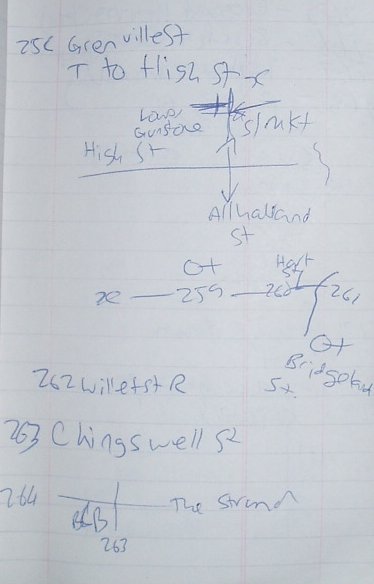 256 Grenville St
T to High St x
Lower
Gunstone
S/Mkt
High St
Allhalland
St
Ct
Hart
St
x — 259 — 260 261
Ct
Bridgeland
St.
262 Willet St R
263 Chingswell St
264 The Strand
263